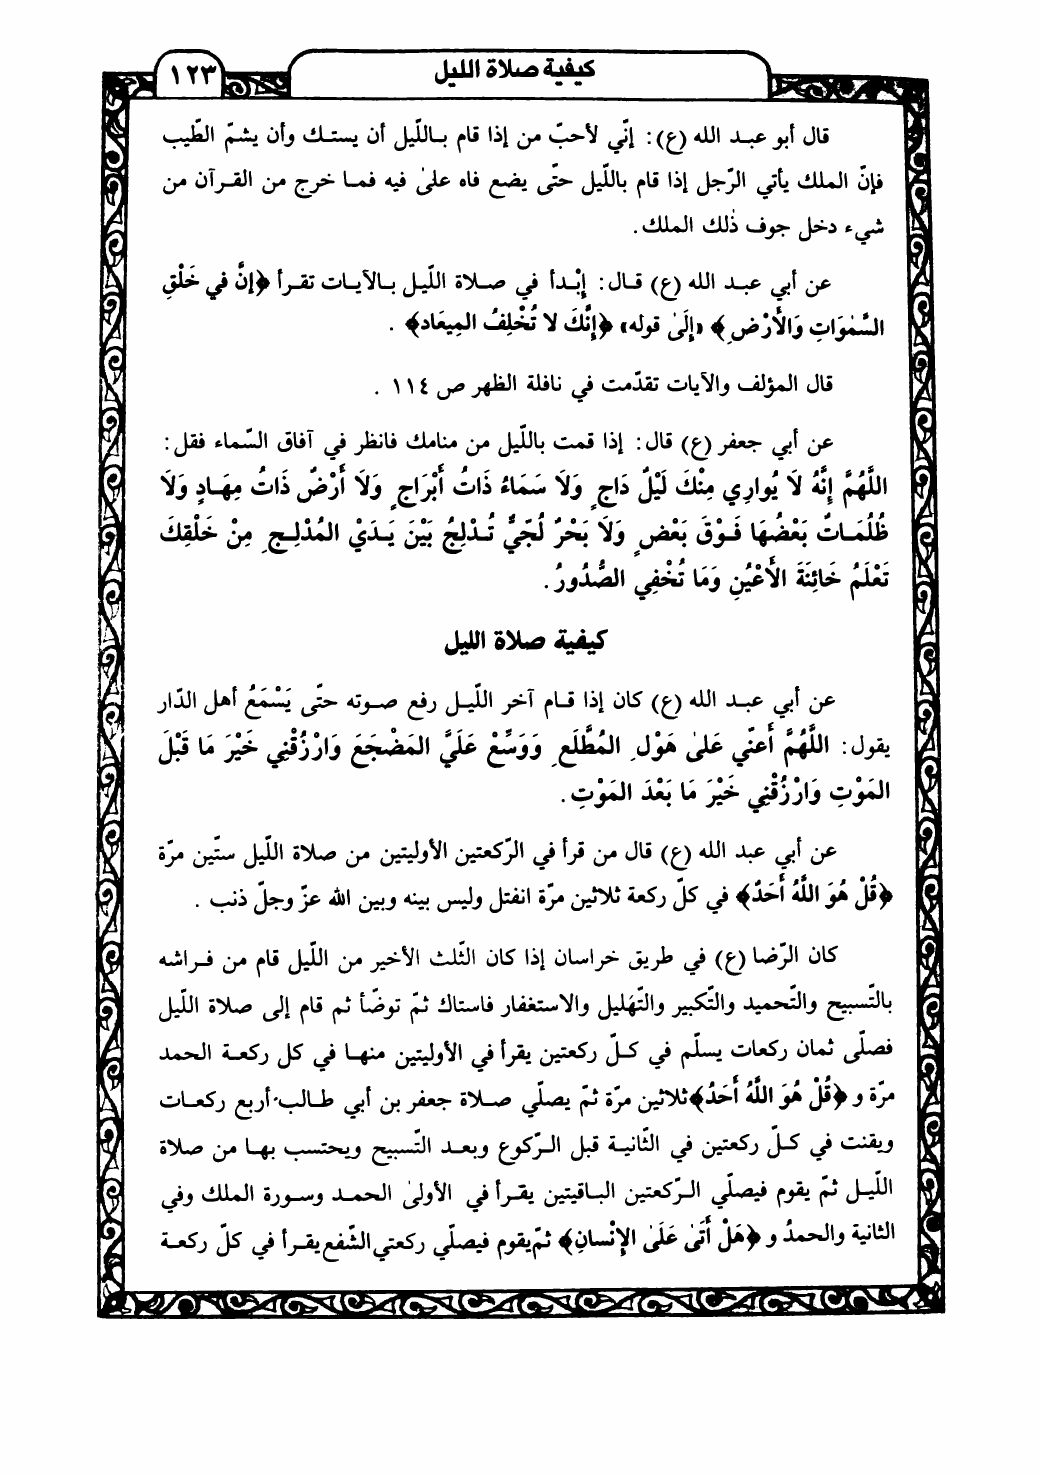 كيفية صلاة الليل
١٢٣
قال أبو عبد الله (ع): إنّي لأحبّ من إذا قام باللّيل أن يستك وأن يشمّ الطّيب
فإنّ الملك يأتي الرّجل إذا قام باللّيل حتّى يضع فاه علىٰ فيه فما خرج من القرآن من
شيء دخل جوف ذٰلك الملك.
عن أبي عبد الله (ع) قال: إبْدأ في صلاة اللّيل بالآيات تقرأ ﴿إنَّ في خَلْقِ
السَّمٰوَاتِ وَالأَرْضِ﴾ «إلَىٰ قوله» ﴿إنَّكَ لا تُخْلِفُ المِيعَاد﴾ .
قال المؤلف والآيات تقدّمت في نافلة الظهر ص ١١٤ .
عن أبي جعفر (ع) قال: إذا قمت باللّيل من منامك فانظر في آفاق السّماء فقل:
اللَّهُمَّ إنَّهُ لَا يُوارِي مِنْكَ لَيْلٌ دَاجٍ وَلَا سَمَاءُ ذَاتُ أَبْرَاجٍ وَلَا أَرْضٌ ذَاتُ مِهَادٍ وَلَا
ظُلُمَاتٌ بَعْضُهَا فَوْقَ بَعْضٍ وَلَا بَحْرٌ لُجّيٌّ تُدْلِجُ بَيْنَ يَدَيْ المُدْلِجِ مِنْ خَلْقِكَ
تَعْلَمُ خَائِنَةَ الأَعْيُنِ وَمَا تُخْفِي الصُّدُورُ.
كيفية صلاة الليل
عن أبي عبد الله (ع) كان إذا قام آخر اللّيل رفع صوته حتّى يَسْمَعُ أهل الدّار
يقول: اللَّهُمَّ أَعنّي عَلىٰ هَوْلِ المُطَّلَعِ وَوَسِّعْ عَلَيَّ المَضْجَعَ وَارْزُقْنِي خَيْرَ مَا قَبْلَ
المَوْتِ وَارْزُقْنِي خَيْرَ مَا بَعْدَ المَوْتِ.
عن أبي عبد الله (ع) قال من قرأ في الرّكعتين الأوليتين من صلاة اللّيل ستّين مرّة
﴿قُلْ هُوَ اللَّهُ أَحَدٌ﴾ في كلّ ركعة ثلاثين مرّة انفتل وليس بينه وبين الله عزّ وجلّ ذنب .
كان الرّضا (ع) في طريق خراسان إذا كان الثّلث الأخير من اللّيل قام من فراشه
بالتّسبيح والتّحميد والتّكبير والتّهليل والاستغفار فاستاك ثمّ توضّأ ثم قام إلى صلاة اللّيل
فصلّى ثمان ركعات يسلّم في كلّ ركعتين يقرأ في الأوليتين منها في كل ركعة الحمد
مرّة و ﴿قُلْ هُوَ اللَّهُ أَحَدُ﴾ ثلاثين مرّة ثمّ يصلّي صلاة جعفر بن أبي طالب أربع ركعات
ويقنت في كلّ ركعتين في الثّانية قبل الرّكوع وبعد التّسبيح ويحتسب بها من صلاة
اللّيل ثمّ يقوم فيصلّي الرّكعتين الباقيتين يقرأ في الأولىٰ الحمد وسورة الملك وفي
الثانية والحمدُ و ﴿هَلْ أَتَىٰ عَلَىٰ الإِنْسانِ﴾ ثمّ يقوم فيصلّي ركعتي الشّفع يقرأ في كلّ ركعة